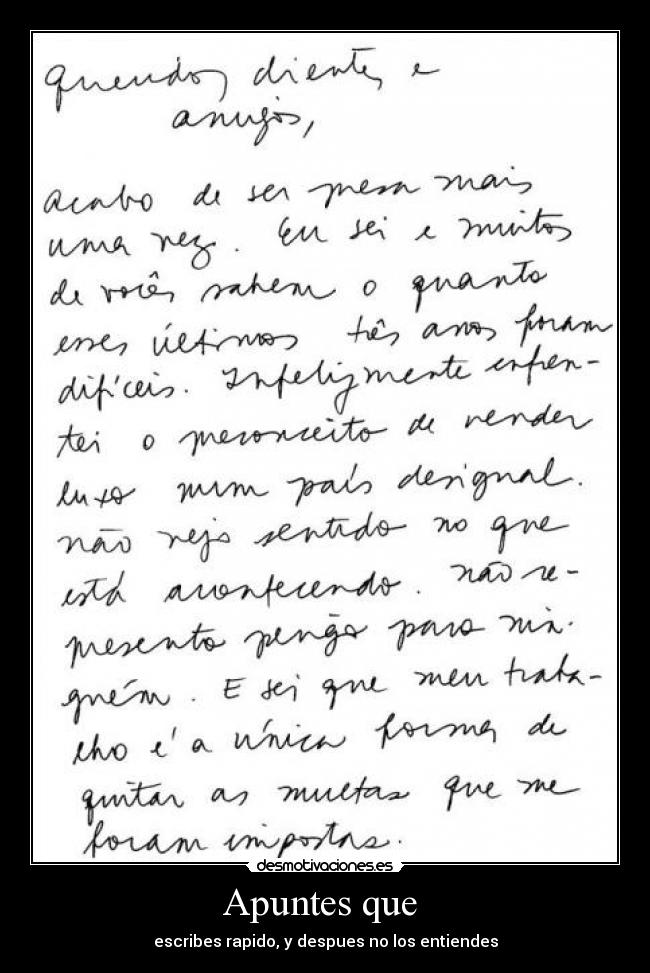 Queridos clientes e
amigos,
acabo de ser presa mais
uma vez. Eu sei e muitos
de vocês sabem o quanto
esses últimos três anos foram
difíceis. Infelizmente enfren-
tei o preconceito de vender
luxo num país desigual.
não vejo sentido no que
está acontecendo. não re-
presento perigo para nin-
guém. E sei que meu traba-
lho é a única forma de
quitar as multas que me
foram impostas.
desmotivaciones.es
Apuntes que
escribes rapido, y despues no los entiendes